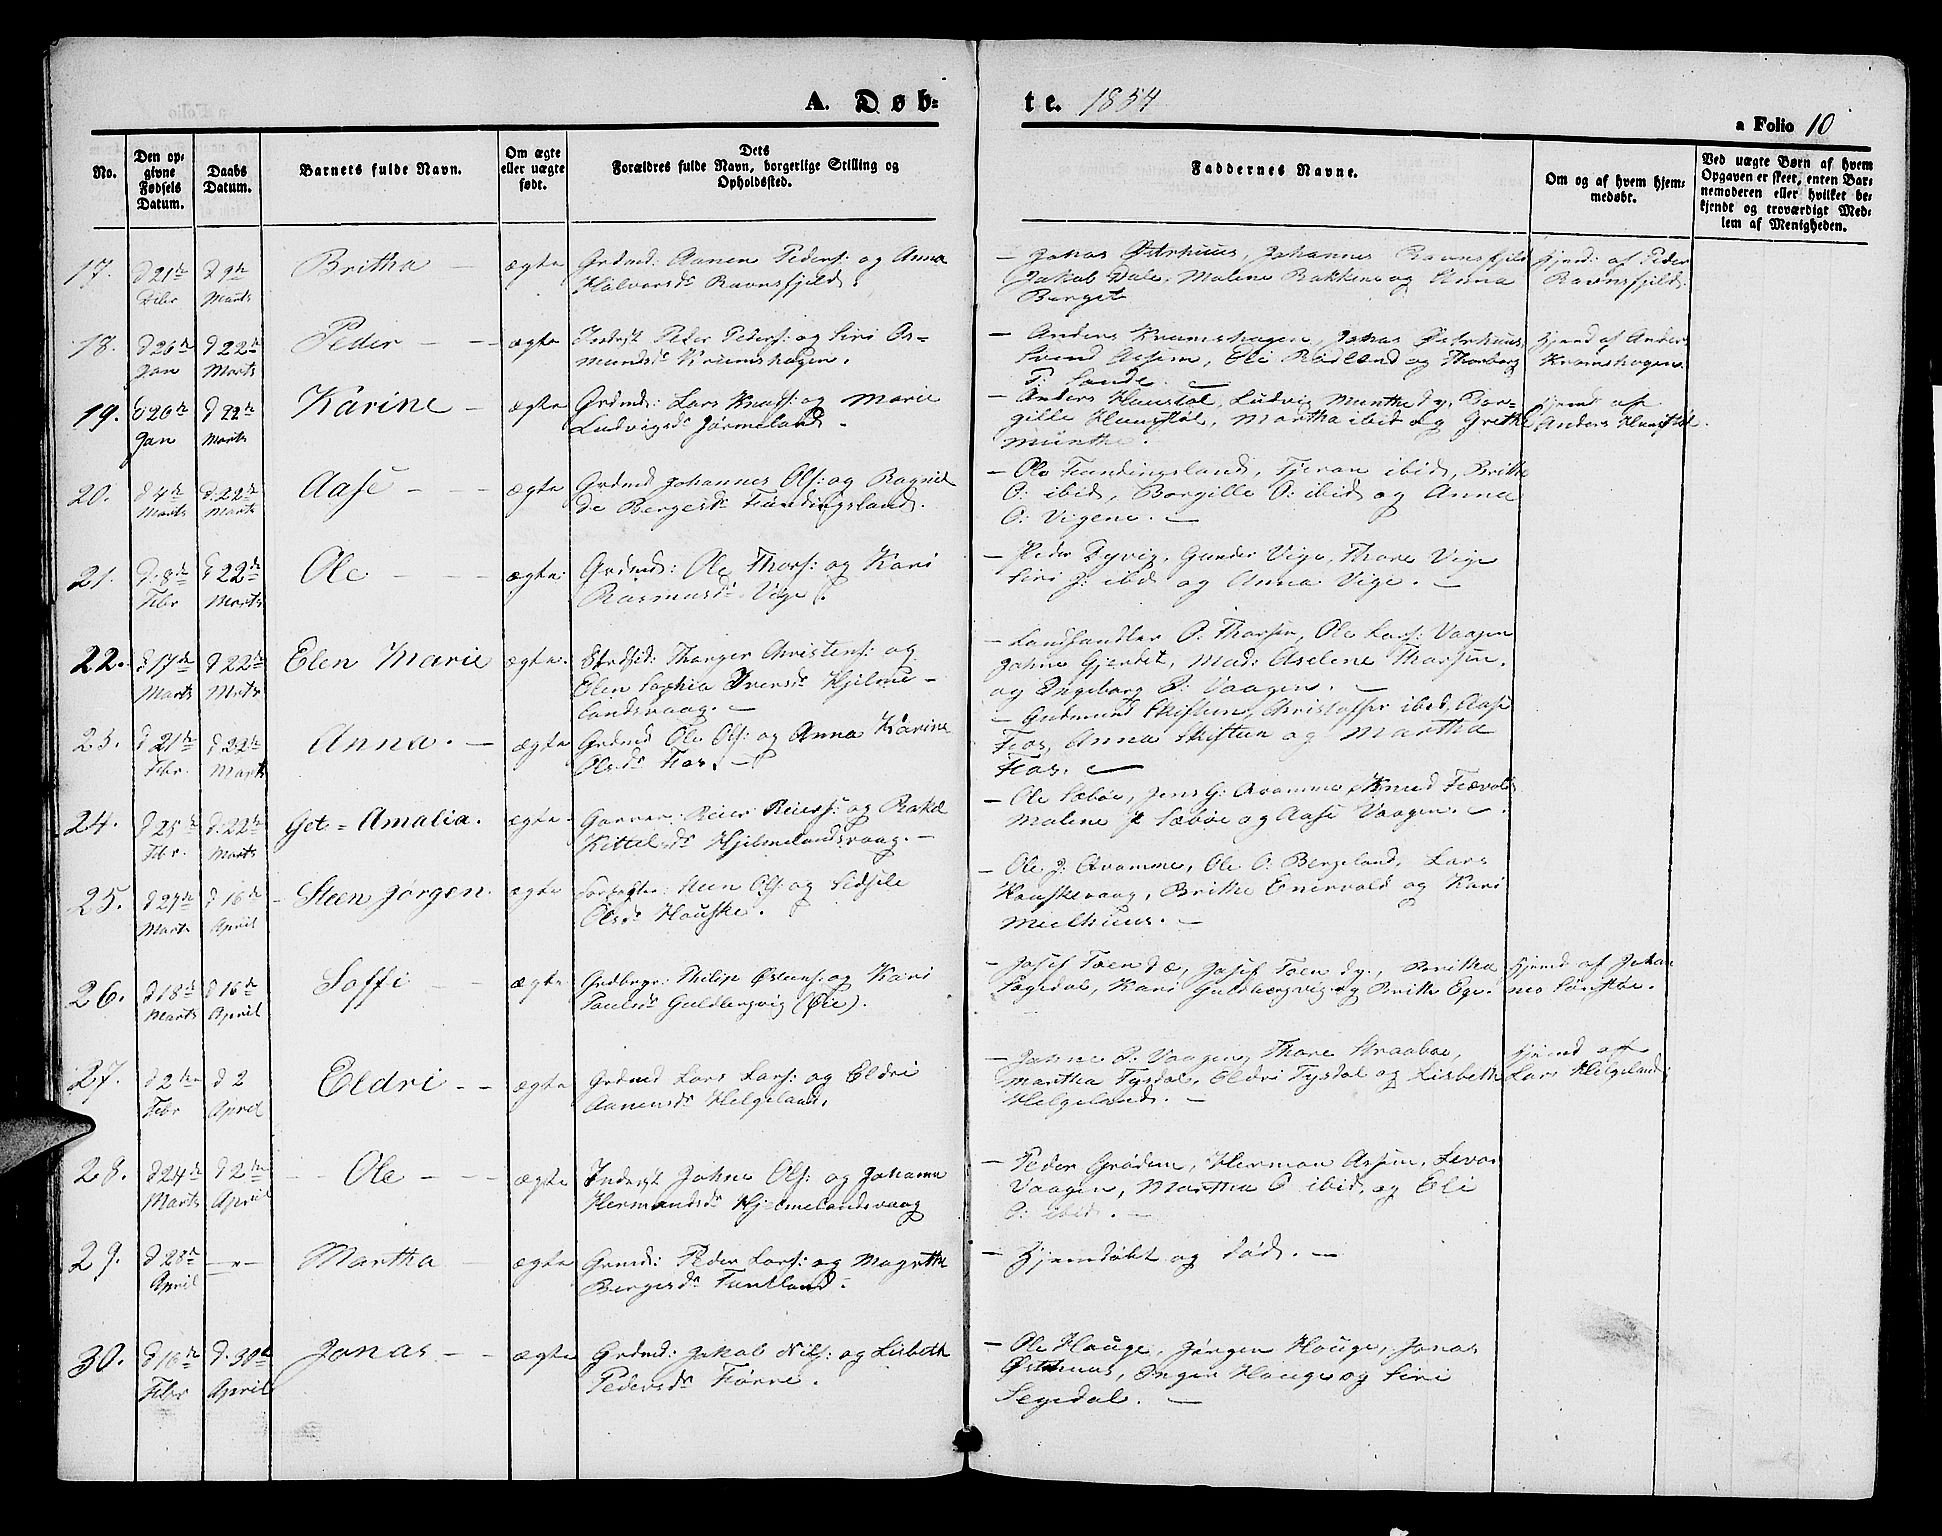 A. Døb-
te. 1854
a Folio 10
No.
Den op-
givne
Fødsels
Datum.
Daabs
Datum.
Barnets fulde Navn.
Om ægte
eller uægte
født.
Dets
Forældres fulde Navn, borgerlige Stilling og
Opholdssted.
Faddernes Navne.
Om og af hvem hjem-
medøbt.
Ved uægte Børn af hvem
Opgaven er skeet, enten Bar-
nemoderen eller hvilket be-
kjendt og troværdigt Med-
lem af Menigheden.
17. d 21de Febr d 9de Marts Britha — ægte Grdmd: Aanen Peders: og Anna
Halvorsdr Ravnsfjeld.
— Jonas Østrhuus, Johannes Ravnsfjeld
Jakob Dale, Malene Bakkene og Anna
Berget
Hjemd: af Peder
Ravnsfjeld.
18. d 26de Jan d 22de Marts Peder — — ægte Inderst Peder Peders: og Siri Os-
mundsdr Krumshagen.
— Anders Krumshagen, Jonas Østrhuus
Svend Assen, Eli Rødland og Thorborg
P: Sande. —
hjemd af Anders
Krumshagen.
19. d 20de Jan d 22de Marts Karine — ægte Grdmd: Lars Knuds: og Marie
Ludvigsdr Jørmeland.
— Anders Haustøl, Ludvig Munthe dy, Bor-
gille Haustøl, Martha ibid og Grethe
Munthe.
hjemd af
Anders Haustøl.
20. d 4de Marts d. 22de Marts Aase — — ægte Grdmd Johannes Ols: og Ragnil
de Bergesdr Fundingsland.
— Ole Fundingsland, Tjeran ibid, Brithe
O: ibid, Borgille O: ibid og Anna
O: Vigene. —
21. d. 8de Febr d 22de Marts Ole — — ægte Grdmd: Ole Thors: og Kari
Rasmusdr Vige.
— Peder Dyvig, Gunder Vige, Thore Vige
Siri J: ibid og Anna Vige. —
22. d 17de Marts d 22de Marts Elen Marie ægte. Strdsid: Thorger Christens: og
Elen Sophia Iversdr Hjelme-
landsvaag. —
— Landhandler O: Thorsen, Ole Lars: Vaagen
Johne Gjerdet, Mad: Aselene Thorsen.
og Ingeborg P: Vaagen. —
23. d 21de Febr. d. 22de Marts Anna. — ægte Grdmd Ole Ols: og Anna Karine
Olsdr Fias. —
— Gudmund Skiftun, Kristoffer ibid, Aase
Fias, Anna Skiftun og Martha
Fias. —
24. d 25de Febr. d. 22de Marts Get-Amalia. ægte Garver: Reier Reiers: og Rakel
Kittelsdr Hjelmelandsvaag. —
— Ole Sæbøe, Jens G: Kvamme, Knud Fævold
Malene Sæbøe og Aase Vaagen. —
25. d 27de Marts d 16de April Steen Jørgen. ægte Steen Ols: og Sidsele
Olsdr Hauske.
— Ole J: Kvamme, Ole O: Bergeland, Lars
Hauskevaag, Brithe Enervold og Kari
Mielhuus. —
26. d 18de Marts d 16de April Soffi — ægte Philip Østens: og Kari
Paulsdr Guldbergvig (Øie).
— Josef Tøen d æ, Josef Tøen dy., Britha
Segedal, Kari Guldbergvig og Brithe Ege.
hjemd af Johan
nes Sørstøe.
27. d 2den Febr d 2 April Eldri — — ægte Grdmd Lars Lars: og Eldri
Aanensdr Helgeland.
— Johne P: Vaagen, Thore Straabøe,
Martha Tysdal, Eldri Tysdal og Lisbeth
Helgeland. —
hjemd af
Lars Helgeland.
28. d 24de Marts d 2den April — Ole — — ægte Inderst Johne Ols: og Johanna
Hermandsdr Hjelmelandsvaag
— Peder Grøden, Herman Assen, Sevar
Vaagen, Martha P ibid, og Eli
P: ibid. —
29. d 28de April — " — Martha ægte Grmd: Peder Lars: og Magrethe
Bergesdr Funtland.
— Hjemdøbt og død. —
30. d 16de Febr d. 30te April Jonas — — ægte Grdmd: Jakob Nils: og Lisbeth
Pedersdr Førre.
— Ole Hauge, Jørgen Hauge, Jonas
Østrhuus, Inger Hauge og Siri
Segedal. —